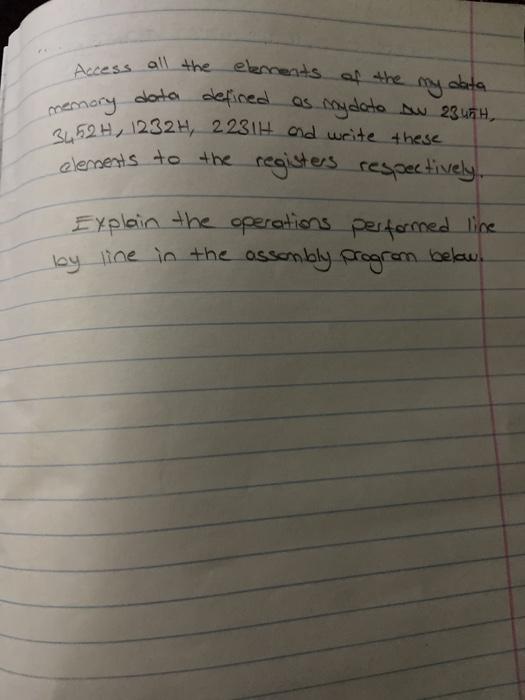 Access all the elements of the my data
memory data defined as mydata DW 2345H,
3452H, 1232H, 2231H and write these
elements to the registers respectively.
Explain the operations performed line
by line in the assembly program below.